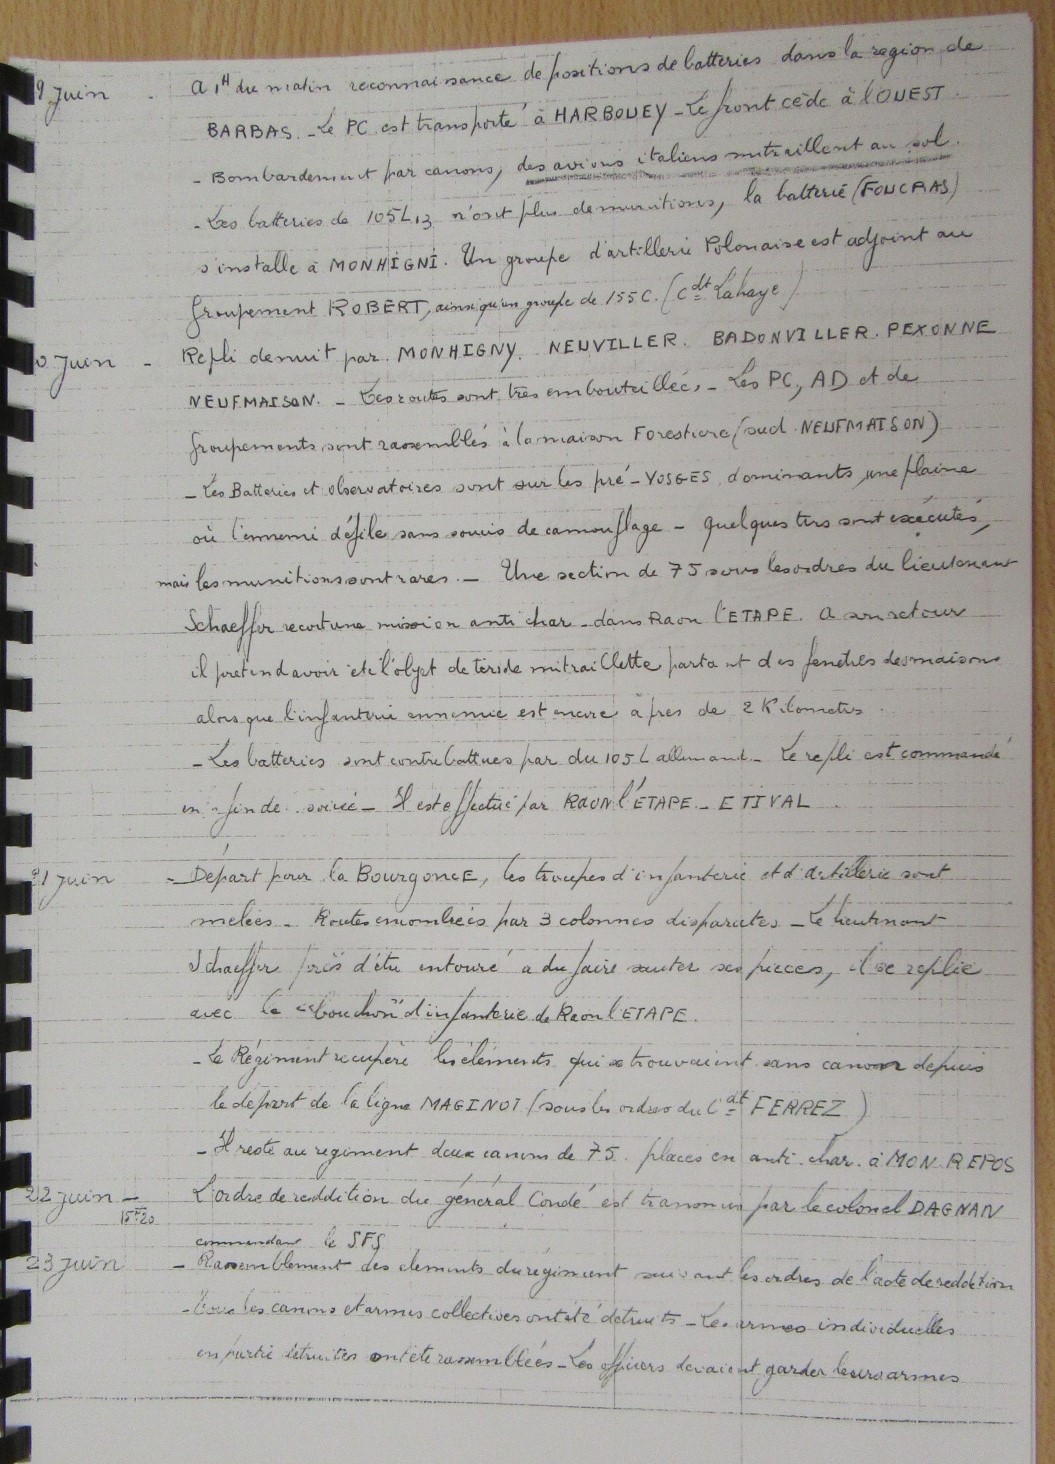 9 Juin - A 1H du matin reconnaissance de positions de batteries dans la region de
BARBAS. - Le PC est transporté à HARBOUEY - Le front cède à l'OUEST.
- Bombardement par canons, des avions italiens mitraillent au sol.
- Les batteries de 105L13 n'ont plus de munitions, la batterie (FOUCRAS)
s'installe à MONHIGNI. Un groupe d'artillerie Polonaise est adjoint au
Groupement ROBERT, ainsi qu'un groupe de 155C. (Cdt Lahaye)
0 Juin - Repli de nuit par MONHIGNY. NEUVILLER. BADONVILLER. PEXONNE
NEUFMAISON. - Les routes sont très embouteillées - Les PC, AD et de
Groupements sont rassemblés à la maison Forestiere (sud NEUFMAISON)
- Les Batteries et observatoires sont sur les pré-VOSGES dominants une plaine
où l'ennemi défile sans soucis de camouflage - Quelques tirs sont exécutés,
mais les munitions sont rares. - Une section de 75 sous les ordres du lieutenant
Schaeffer recoit une mission anti char - dans Raon l'ETAPE. A son retour
il pretend avoir été l'objet de tirs de mitraillette partant des fenetres des maisons
alors que l'infanterie ennemie est encore à pres de 2 Kilometres.
- Les batteries sont contrebattues par du 105L allemand - Le repli est commandé
en fin de soirée - Il est effectué par RAON l'ETAPE - ETIVAL.
21 Juin - Départ pour la BourgoncE, les troupes d'infanterie et d'artillerie sont
melées - Routes encombrées par 3 colonnes disparates - Le lieutenant
Schaeffer près d'étre entouré a du faire sauter ses pieces, il se replie
avec le "bouchon" d'infanterie de Raon l'ETAPE.
- Le Régiment recupère les élements qui se trouvaient sans canon depuis
le départ de la ligne MAGINOT (sous les ordres du Cdt FERREZ)
- Il reste au regiment deux canons de 75 placés en anti-char à MON REPOS
22 Juin - L'ordre de reddition du général Condé est transmis par le colonel DAGNAN
15H20
commandant le SFS
23 Juin - Rassemblement des elements du régiment suivant les ordres de l'acte de reddition
- Tous les canons et armes collectives ont été détruits - Les armes individuelles
en partie détruites ont été rassemblées - Les officiers devaient garder leurs armes